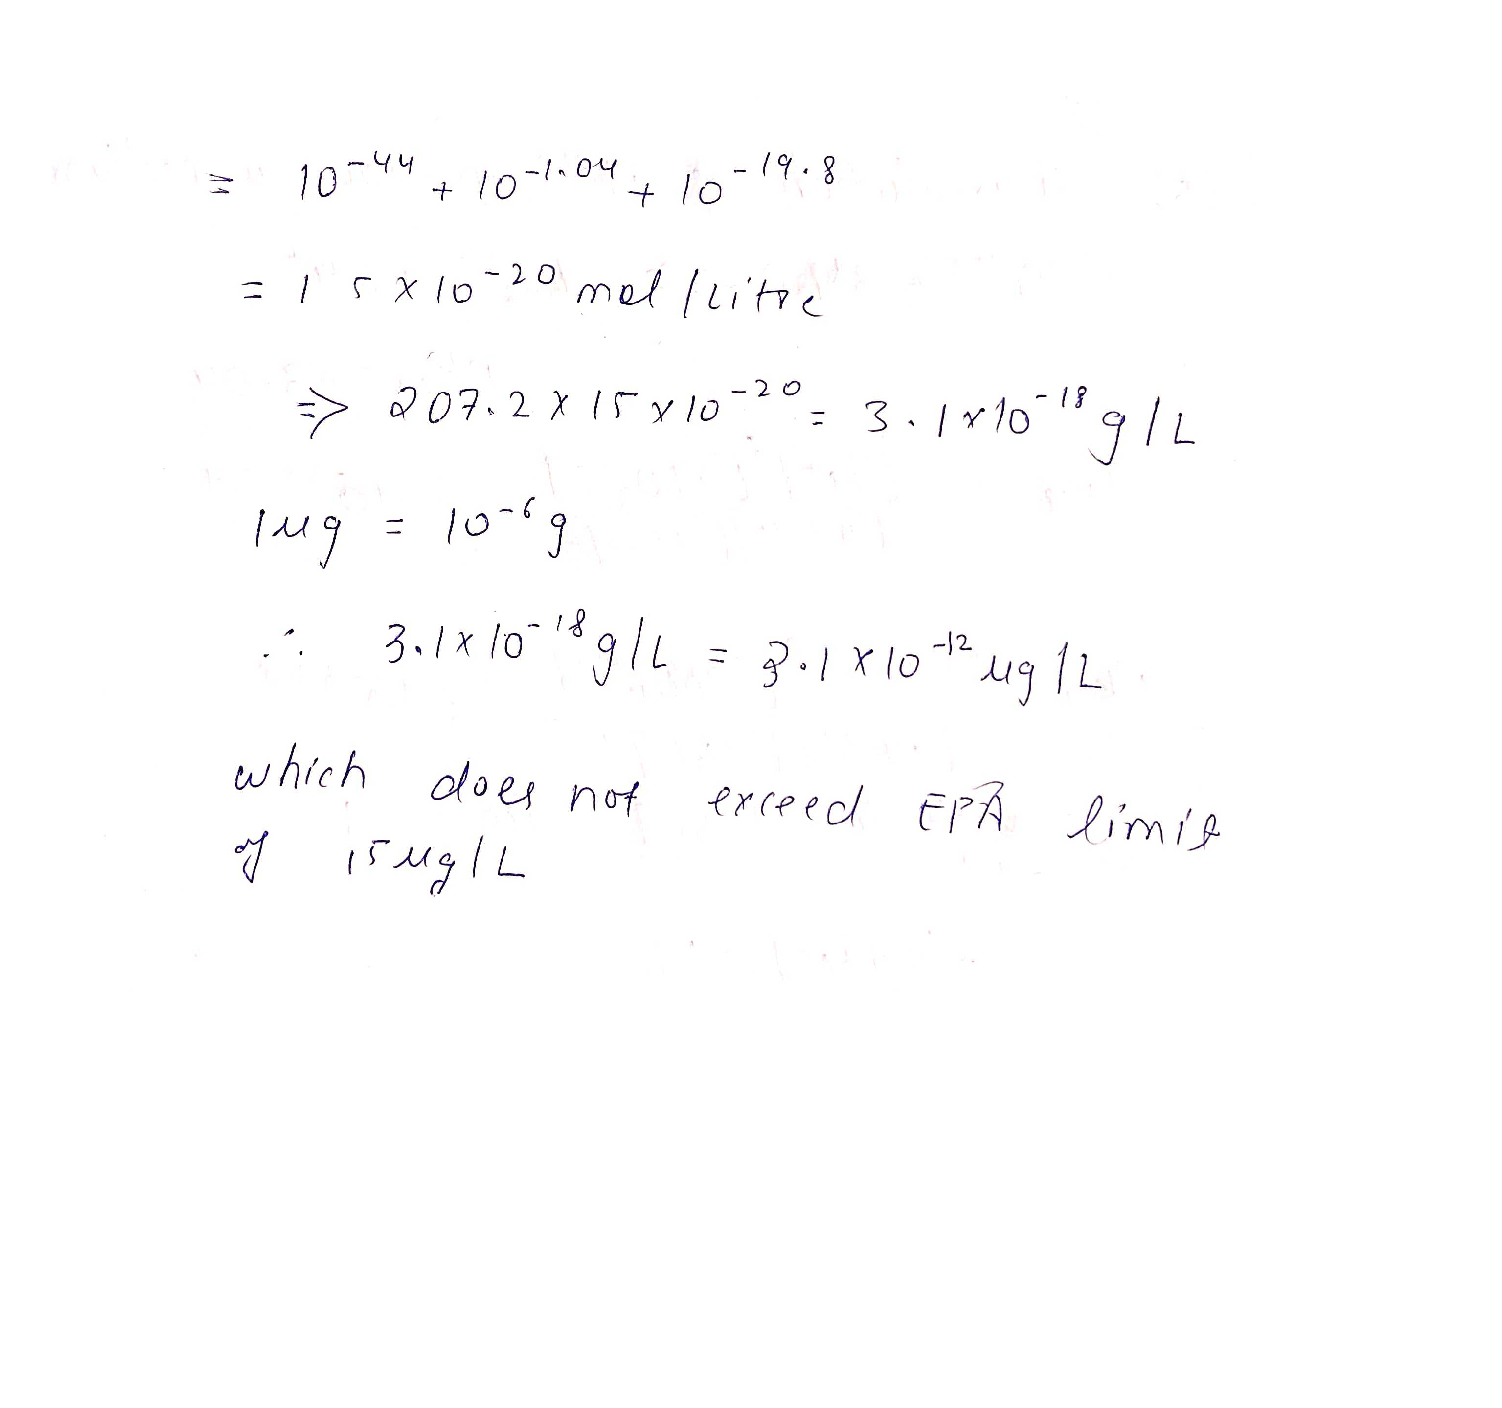 = 10^-44 + 10^-1.04 + 10^-19.8
= 1 5 x 10^-20 mol / Litre
⇒ 207.2 x 15 x 10^-20 = 3.1 x 10^-18 g/L
1 ug = 10^-6 g
∴ 3.1 x 10^-18 g/L = 3.1 x 10^-12 ug/L
which does not exceed EPA limit
of 15 ug/L